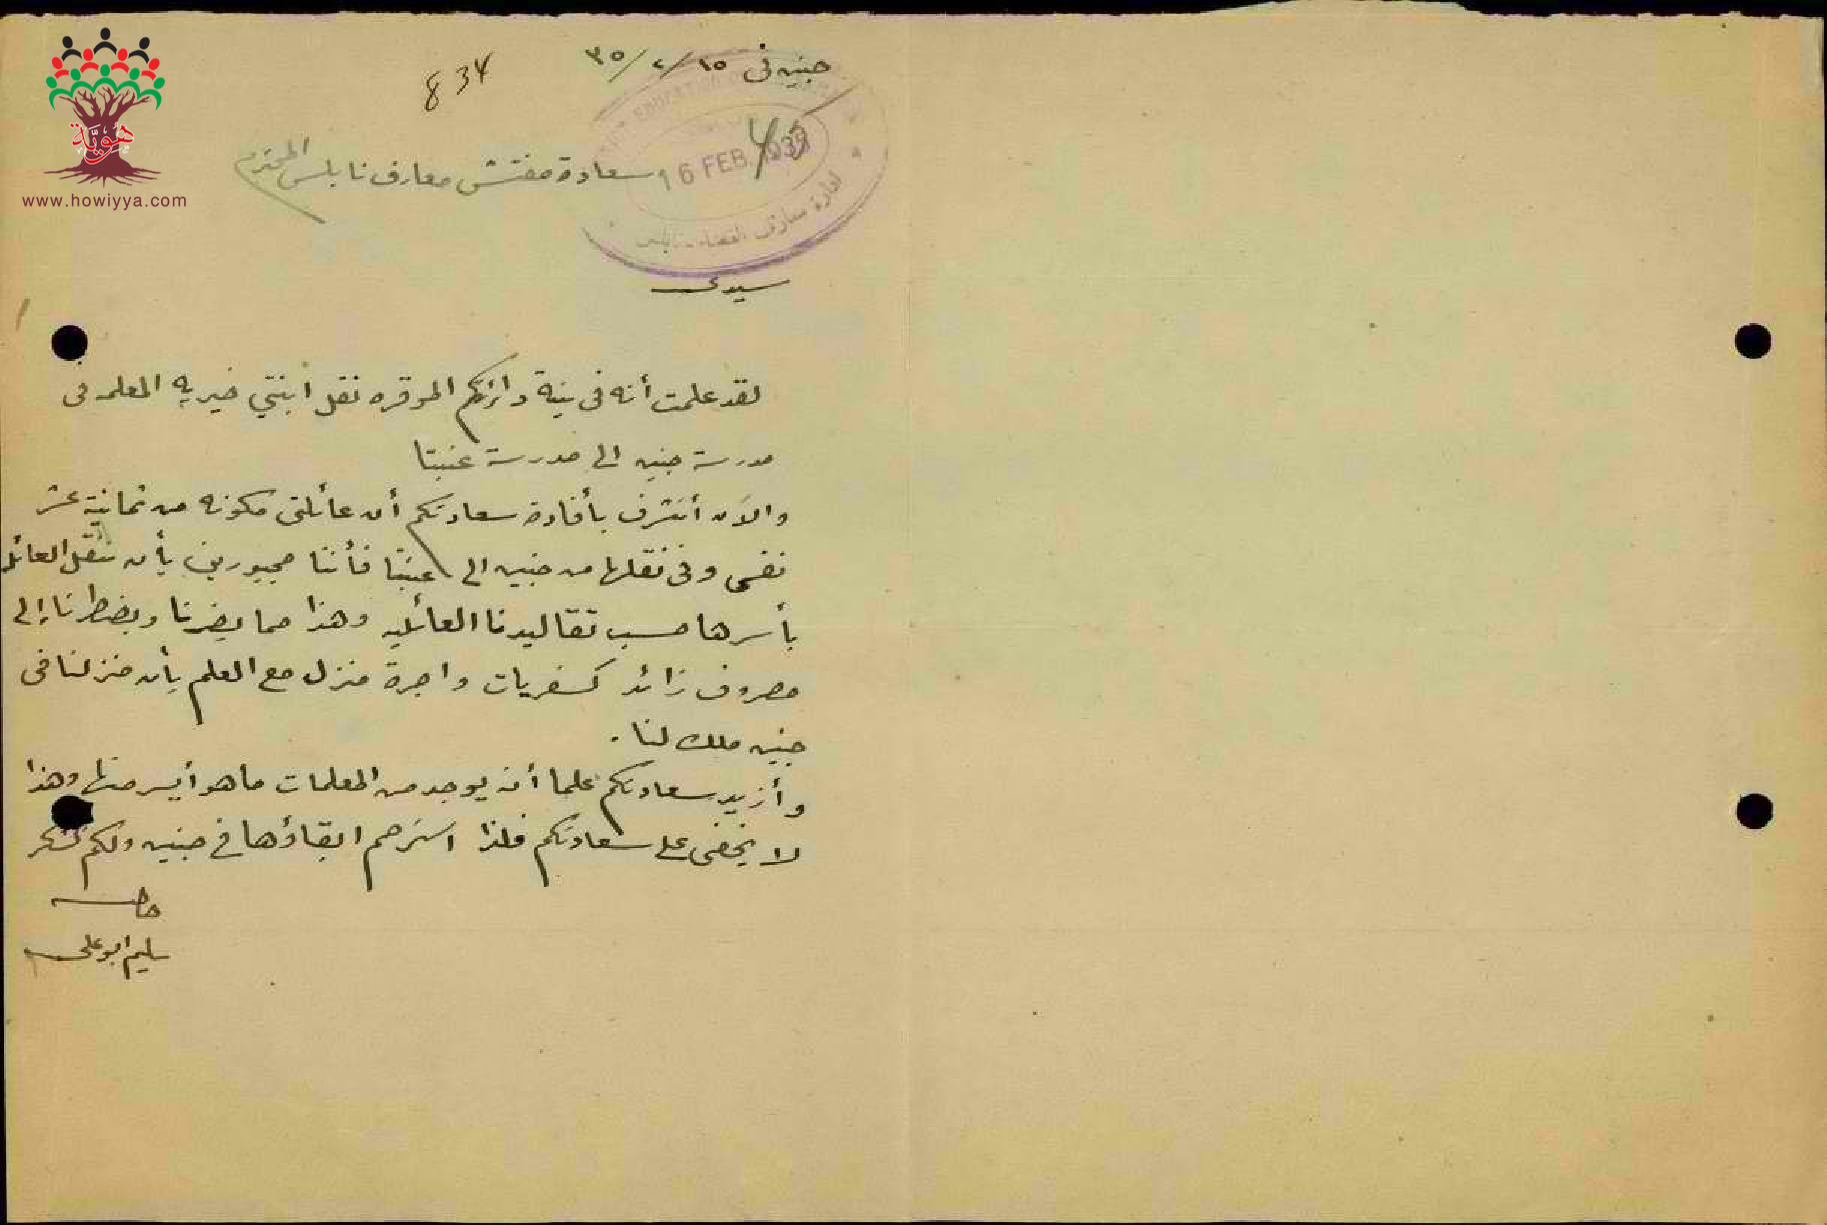 هُويَّة
www.howiyya.com
834
جنين في ١٥/٢/٣٥
16 FEB. 1935
ادارة معارف القضاء نابلس
سعادة مفتش معارف نابلس المحترم
سيدي
لقد علمت أنه في نية دائرتكم الموقره نقل ابنتي خيريه المعلمه في
مدرسة جنين الى مدرسة عنبتا
والآن أتشرف بأفادة سعادتكم أن عائلتي مكونه من ثمانية عشر
نفس وفي نقلها من جنين الى عنبتا فأننا مجبورين بأن ننقل العائله
بأسرها حسب تقاليدنا العائليه وهذا مما يضرنا ويضطرنا إلى
مصروف زائد كسفريات واجرة منزل مع العلم بأن منزلنا في
جنين ملك لنا.
وأزيد سعادتكم علما أنه يوجد من المعلمات ما هو أيسر منها وهذا
لا يخفى على سعادتكم فلذا استرحم ابقاؤها في جنين ولكم الشكر
سليم ابو علي